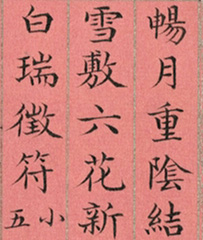 暢月重陰結
雪敷六花新
白瑞徴符小五